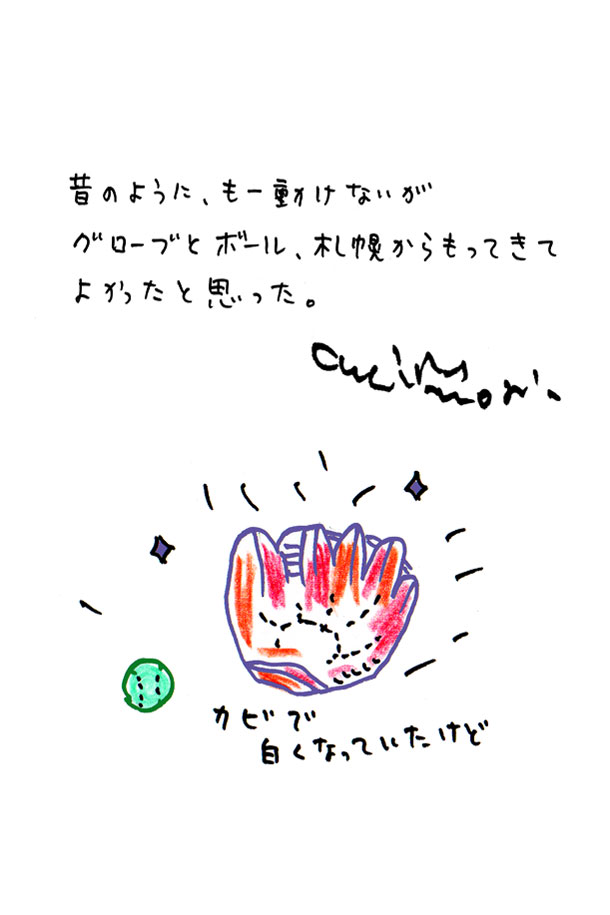 昔のように、も一動けないが
グローブとボール、札幌からもってきて
よかったと思った。
カビで
白くなっていたけど